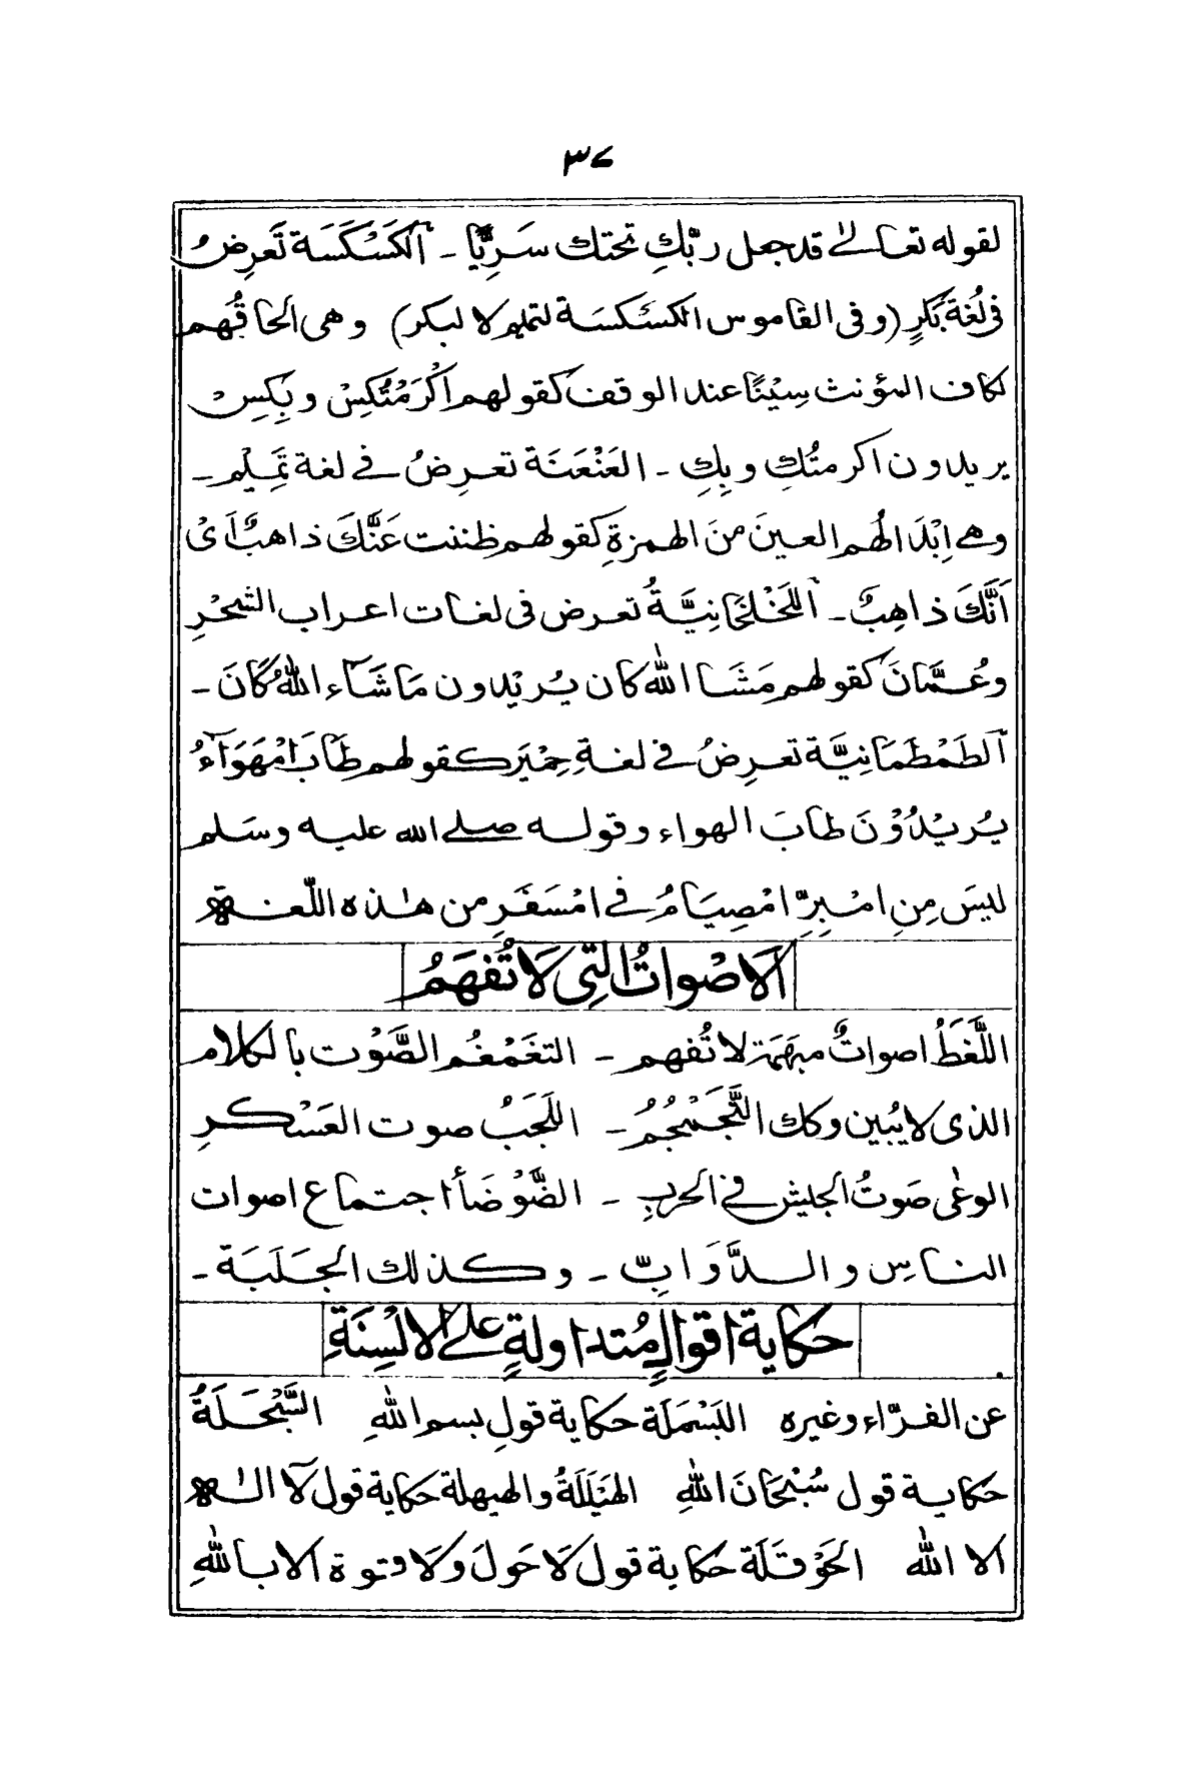 ۳۷
لقوله تعالیٰ قد جعل ربّكِ تحتك سَرِيًّا ـ اَلكَسْكَسَة تَعرِضُ
فی لُغة بَكرٍ (وفی القاموس الكسْكسَة لتميم لا لبكر) وهی اِلحاقُهم
لكاف المؤنث سِيْنًا عند الوقف كقولهم اَكْرَمْتُكِسْ وبِكِسْ
يريدون اكرمتُكِ وبِكِ ـ العَنْعَنَة تعرِضُ فی لغة تَمِيْم ـ
وهی اِبْدَالُهم العينَ منَ الهمزةِ كقولهم ظننت عَنَّكَ ذاهبٌ اَیْ
اَنَّكَ ذاهِبٌ ـ اَللَّخْلَخَانِيَّةُ تعرض فی لغات اعراب الشحْرِ
وعُمَّانَ كقولهم مَشَا اللّٰه كان يُرِيْدون مَا شَآءَ اللّٰهُ كَانَ ـ
اَلطَمْطَمَانِيَّة تعرِضُ فی لغةِ حِمْيَر كقولهم طَابَ امْهَوَآءُ
يُرِيْدُوْنَ طابَ الهواء وقوله صلی الله عليه وسَلم
ليسَ مِنِ امْبِرِّ امْصِيَامُ فی امْسَفَرِ من هٰذه اللّغة
اَلاَصْوَاتُ الَّتِی لَا تُفْهَمُ
اللَّغَطُ اصواتٌ مبهَمَة لا تُفهم ـ التغَمْغُم الصَّوْت بالكلام
الذی لا يُبين وكك التَّجَمْجُمُ ـ اللَجَبُ صوت العَسْكرِ
الوغٰی صَوتُ الجيش فی الحربِ ـ الضَّوْضَأ اجتماع اصوات
الناسِ والدَّوَابِّ ـ وكذلك الجَلَبَة ـ
حكاية اقوالٍ مُتداولةٍ علی الالْسِنَةِ
عن الفرّاء وغيره البَسْمَلَة حكاية قولِ بسم اللّٰهِ السَّبْحَلَةُ
حكاية قول سُبْحَانَ اللّٰهِ الهَيْلَلَةُ والهيهلة حكاية قول لَآ الٰه
الا اللّٰه الحَوْقَلَة حكاية قول لَا حَولَ وَلَا قوة الا باللّٰهِ